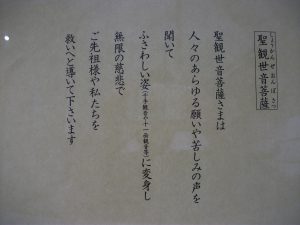 聖観世音菩薩
しょうかんぜおんぼさつ
聖観世音菩薩さまは
人々のあらゆる願いや苦しみの声を
聞いて
ふさわしい姿(千手観音や十一面観音等)に変身し
無限の慈悲で
ご先祖様や私たちを
救いへと導いて下さいます